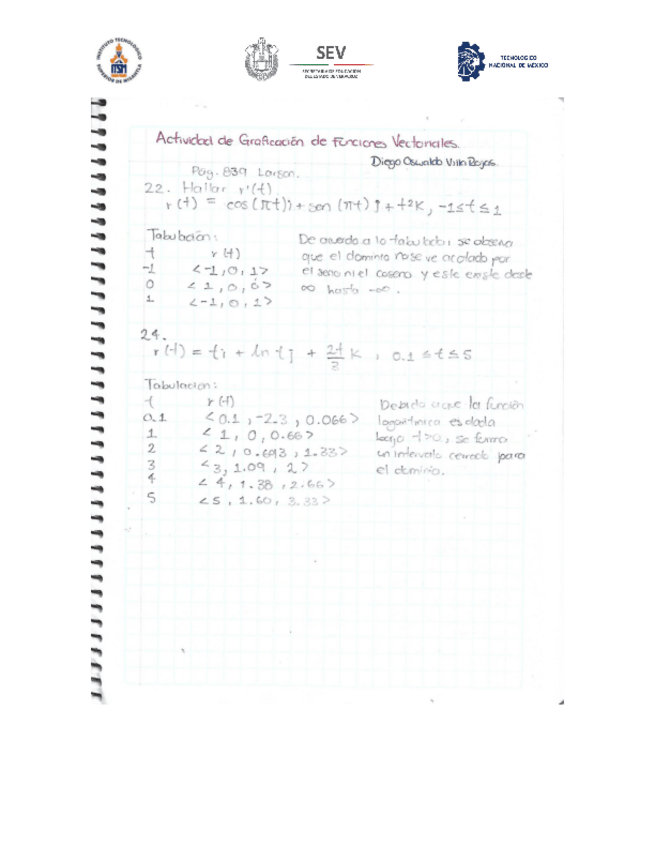 INSTITUTO TECNOLOGICO SUPERIOR DE MISANTLA
SEV
SECRETARÍA DE EDUCACIÓN
DEL ESTADO DE VERACRUZ
TECNOLOGICO
NACIONAL DE MEXICO
Actividad de Graficación de Funciones Vectoriales.
Diego Oswaldo Villa Rojas
Pág. 839 Larson.
22. Hallar r'(t)
r(t) = cos(πt)i + sen (πt) j + t²K, -1≤t≤1
Tabulación:
t r(t)
-1 <-1,0,1>
0 <1,0,0>
1 <-1,0,1>
De acuerdo a lo tabulado, se observa
que el dominio no se ve acotado por
el seno ni el coseno y este existe desde
∞ hasta -∞.
24.
r(t) = ti + ln tj + 2t/3 K, 0.1 ≤ t ≤ 5
Tabulacion:
t r(t)
0.1 <0.1, -2.3, 0.066>
1 <1, 0, 0.66>
2 <2, 0.693, 1.33>
3 <3, 1.09, 2>
4 <4, 1.38, 2.66>
5 <5, 1.60, 3.33>
Debido a que la función
logaritmica es dada
bajo t>0, se forma
un intervalo cerrado para
el dominio.